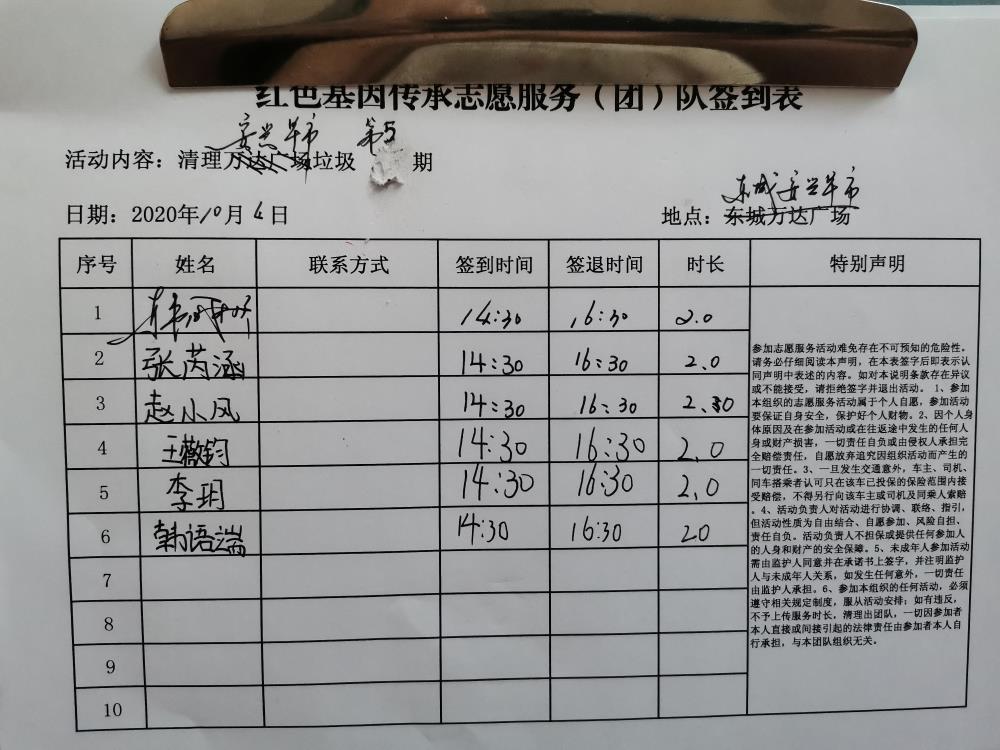 红色基因传承志愿服务（团）队签到表
安兴早市 第5
活动内容：清理万达广场垃圾 期
东城安兴早市
日期：2020年10月4日 地点：东城万达广场
序号 姓名 联系方式 签到时间 签退时间 时长 特别声明
1 14:30 16:30 2.0
2 张芮涵 14:30 16:30 2.0
3 赵小凤 14:30 16:30 2.30
4 王薇钧 14:30 16:30 2.0
5 李玥 14:30 16:30 2.0
6 韩语端 14:30 16:30 20
7
8
9
10
参加志愿服务活动难免存在不可预知的危险性。
请务必仔细阅读本声明，在本表签字后即表示认
同声明中表述的内容。如对本说明条款存在异议
或不能接受，请拒绝签字并退出活动。 1、参加
本组织的志愿服务活动属于个人自愿，参加活动
要保证自身安全，保护好个人财物。2、因个人身
体原因及在参加活动或在往返途中发生的任何人
身或财产损害，一切责任自负或由侵权人承担完
全赔偿责任，自愿放弃追究因组织活动而产生的
一切责任。3、一旦发生交通意外，车主、司机、
同车搭乘者认可只在该车已投保的保险范围内接
受赔偿，不得另行向该车主或司机及同乘人索赔
。4、活动负责人对活动进行协调、联络、指引，
但活动性质为自由结合、自愿参加、风险自担、
责任自负。活动负责人不担保或提供任何参加人
的人身和财产的安全保障。5、未成年人参加活动
需由监护人同意并在承诺书上签字，并注明监护
人与未成年人关系，如发生任何意外，一切责任
由监护人承担。6、参加本组织的任何活动，必须
遵守相关规定制度，服从活动安排；如有违反，
不予上传服务时长，清理出团队，一切因参加者
本人直接或间接引起的法律责任由参加者本人自
行承担，与本团队组织无关。